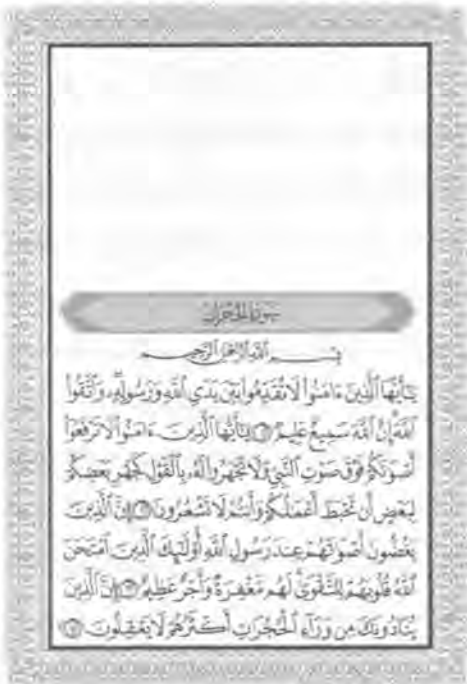 سورة الحجرات
بسم الله الرحمن الرحيم
يَٰٓأَيُّهَا ٱلَّذِينَ ءَامَنُوا۟ لَا تُقَدِّمُوا۟ بَيْنَ يَدَىِ ٱللَّهِ وَرَسُولِهِۦ ۖ وَٱتَّقُوا۟
ٱللَّهَ ۚ إِنَّ ٱللَّهَ سَمِيعٌ عَلِيمٌ ۝١ يَٰٓأَيُّهَا ٱلَّذِينَ ءَامَنُوا۟ لَا تَرْفَعُوٓا۟
أَصْوَٰتَكُمْ فَوْقَ صَوْتِ ٱلنَّبِىِّ وَلَا تَجْهَرُوا۟ لَهُۥ بِٱلْقَوْلِ كَجَهْرِ بَعْضِكُمْ
لِبَعْضٍ أَن تَحْبَطَ أَعْمَٰلُكُمْ وَأَنتُمْ لَا تَشْعُرُونَ ۝٢ إِنَّ ٱلَّذِينَ
يَغُضُّونَ أَصْوَٰتَهُمْ عِندَ رَسُولِ ٱللَّهِ أُو۟لَٰٓئِكَ ٱلَّذِينَ ٱمْتَحَنَ
ٱللَّهُ قُلُوبَهُمْ لِلتَّقْوَىٰ ۚ لَهُم مَّغْفِرَةٌ وَأَجْرٌ عَظِيمٌ ۝٣ إِنَّ ٱلَّذِينَ
يُنَادُونَكَ مِن وَرَآءِ ٱلْحُجُرَٰتِ أَكْثَرُهُمْ لَا يَعْقِلُونَ ۝٤